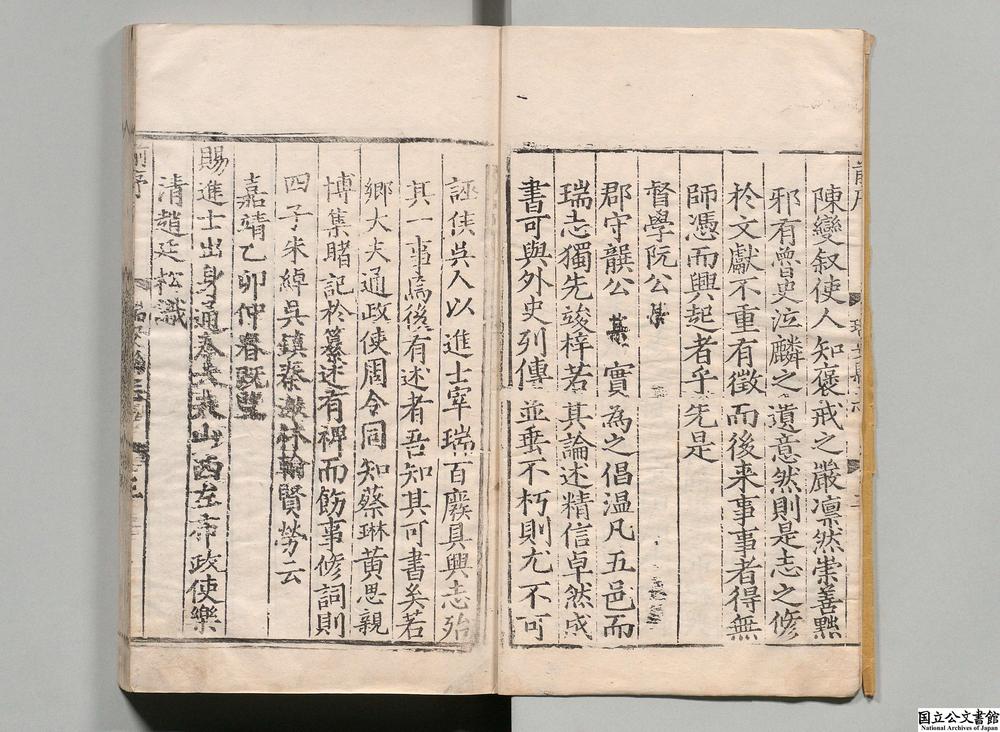 陳變叙使人知褒戒之嚴凛然崇善黜
邪有魯史泣麟之遺意然則是志之修
於文獻不重有徵而後来事事者得無
師憑而興起者乎先是
督學阮公
郡守龔公 實為之倡温凡五邑而
瑞志獨先竣梓若其論述精信卓然成
書可與外史列傳並垂不朽則尤不可
誣侯吳人以進士宰瑞百廢具興志殆
其一事焉後有述者吾知其可書矣若
鄉大夫通政使周令同知蔡琳黄思親
博集睹記於纂述有禆而飭事修詞則
四子朱綽吳鎮秦激林翰賢勞云
嘉靖乙卯仲春既望
賜進士出身通奉大夫山西左布政使樂
清趙廷松識
国立公文書館
National Archives of Japan